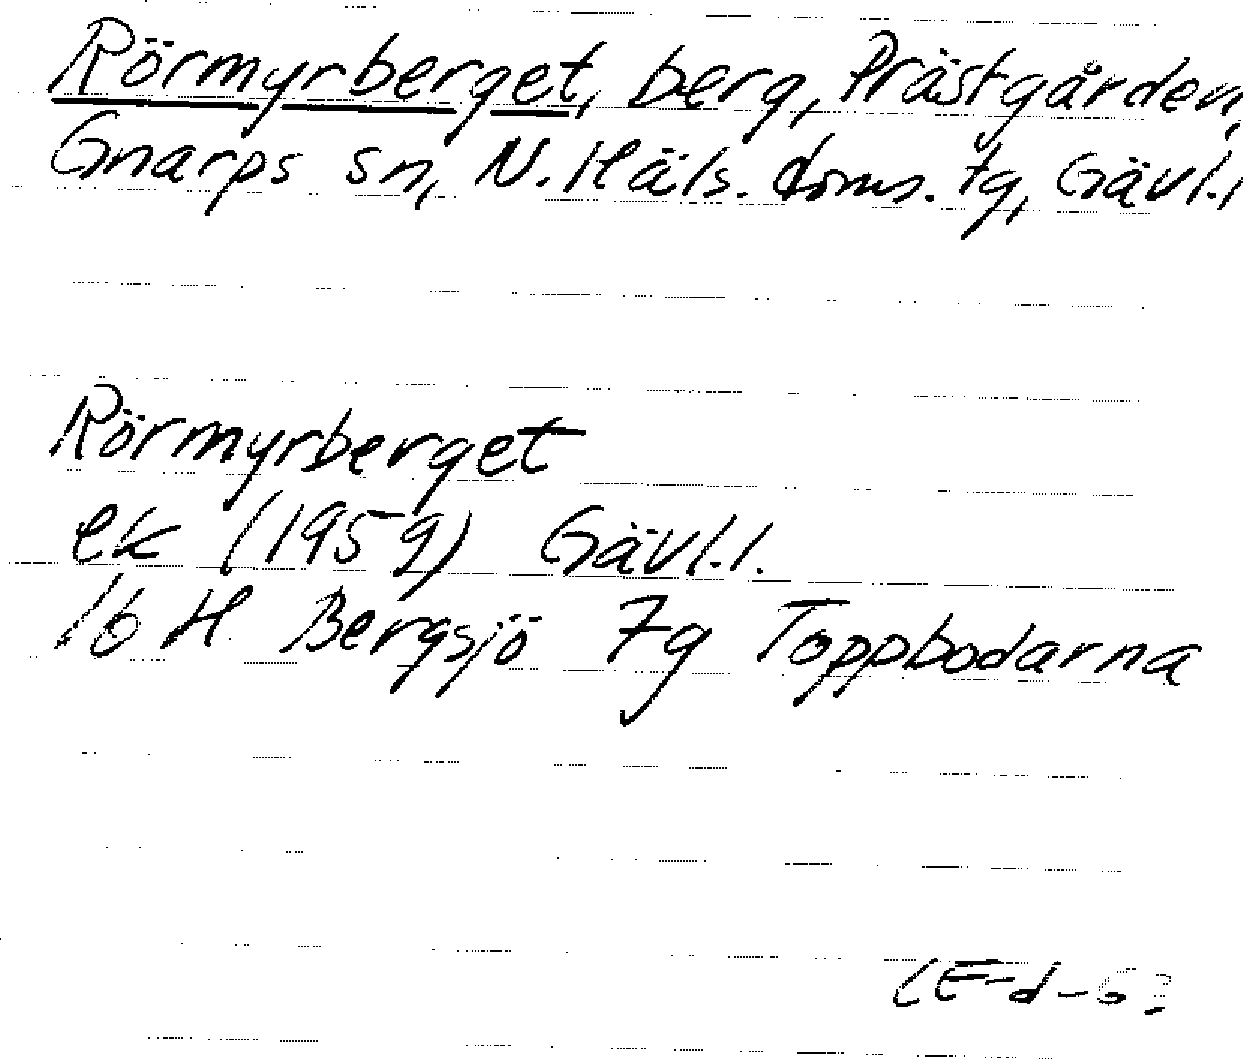 Rörmyrberget, berg, Prästgården,
Gnarps sn, N. Häls. doms. tg, Gävl.l
Rörmyrberget
ek (1959) Gävl.l.
16 H Bergsjö 7g Toppbodarna